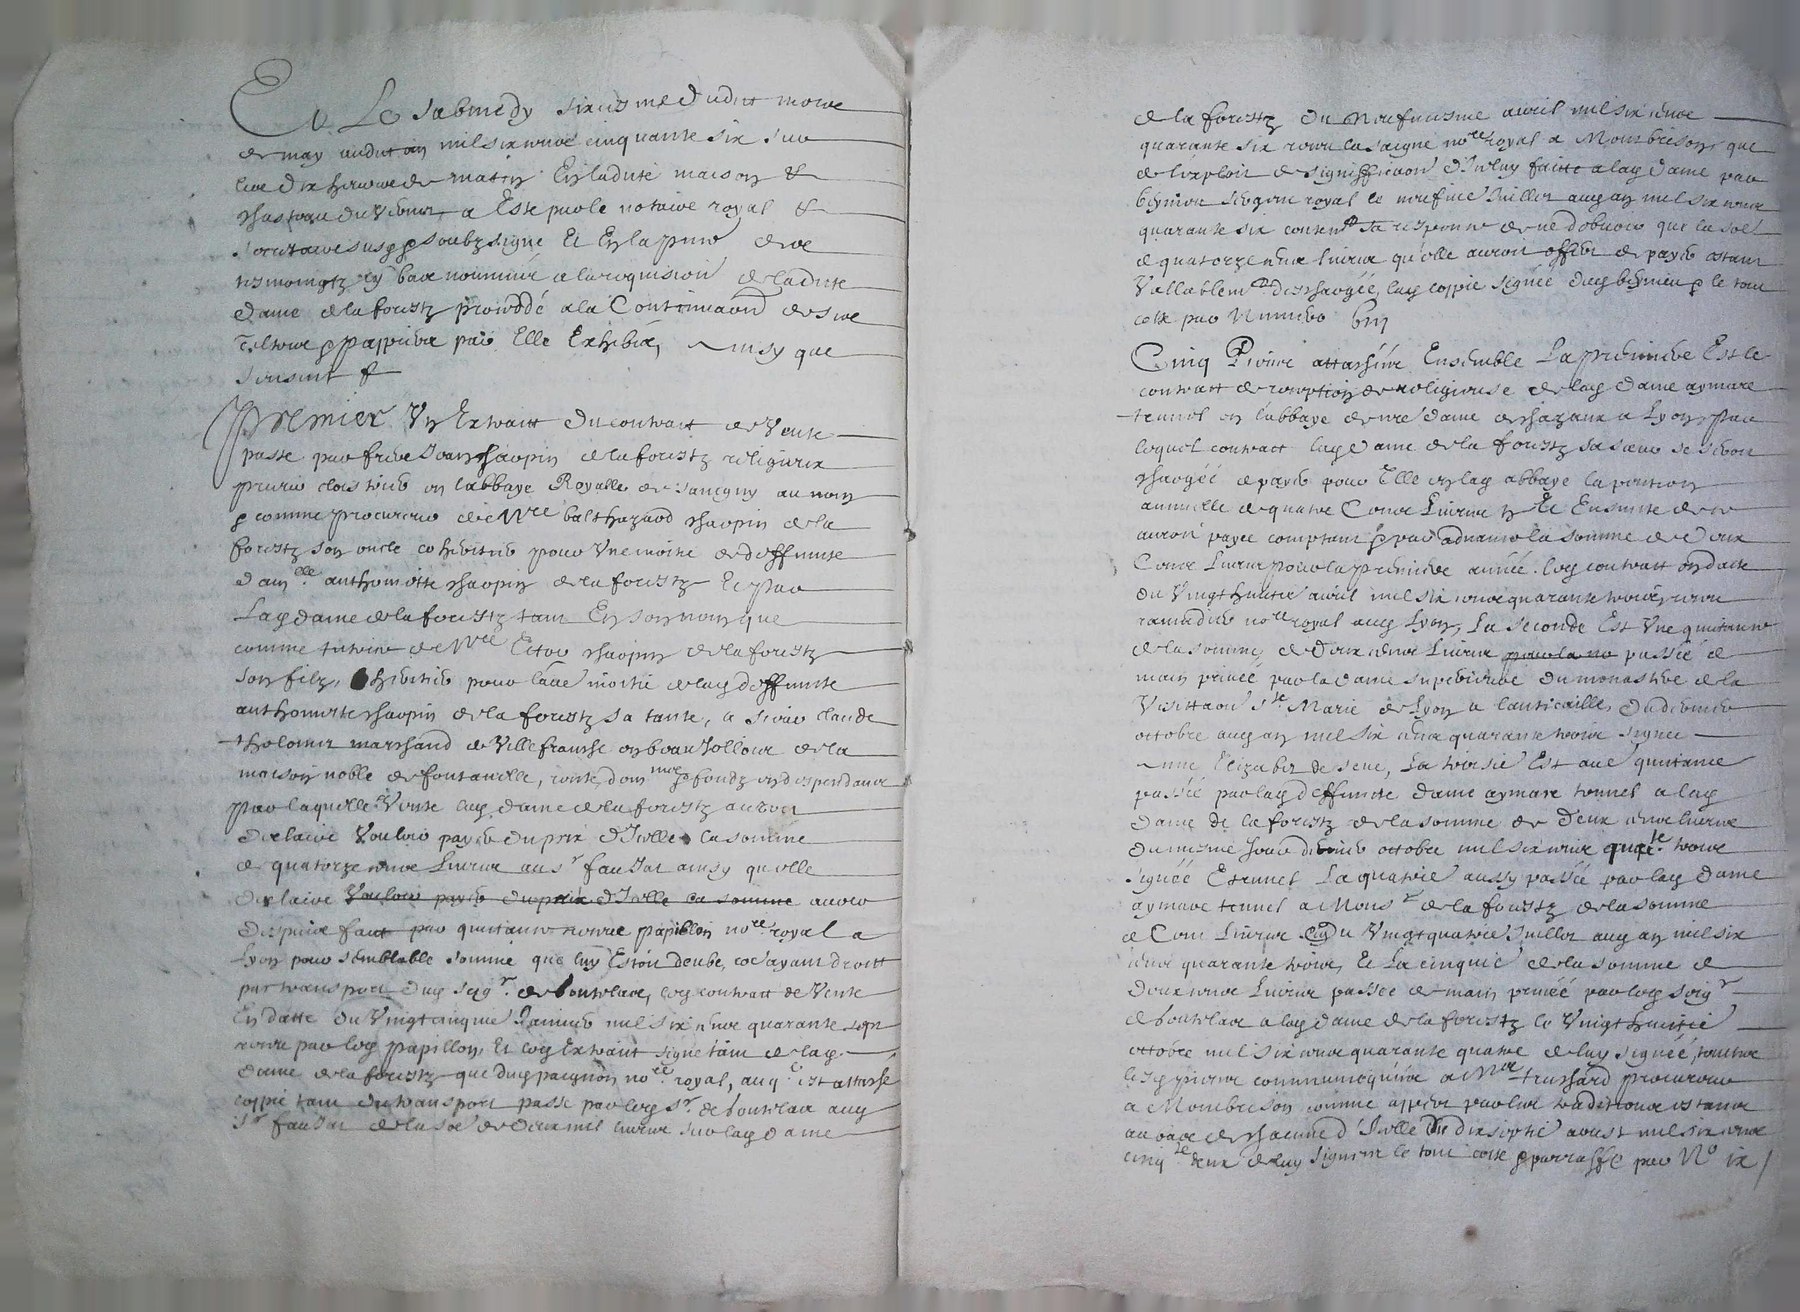 Et Le sabmedy sixiesme dudit mois
de may audit an mil six cens cinquante six sur
les dix heures de matin En ladite maison &
chasteau du Vernet, a Esté par le notaire royal &
secretaire susd soubzsigné Et En la pnce de
tesmoingtz cy bas nommés a la requisition de ladite
dame de la forestz proceddé a la Continuaon de
tiltres & papiers par Elle Exhibés, ainsy que
sensuit &
Premier Un Extraict du contract de Vente
passé par frere Jean Chappin de la forestz religieux
prieur cloistrier en l'abbaye Royalle de Savigny au nom
& comme procureur de Mre balthazard chappin de la
forestz son oncle coheritier pour Une moitié de deffuncte
damlle anthoinette chappin de la forestz Et par
Lad dame de la forestz tant En son nom que
comme tutrice de Mre Ector chappin de la forestz
son filz, heritier pour laue moitié de lad deffuncte
anthoinette chappin de la forestz sa tante, a sieur claude
tholomet marchand de Villefranche en beaujollois de la
maison noble de fontanelle, rente, dom & fondz en dependans
par laquelle Vente lad dame de la forestz auroit
declairé Vouloir payer du prix d'Icelle la somme
de quatorze cens Livres au sr faujat ainsy qu'elle
declaire Vouloir payer du prix d'Icelle la somme avoir
despuis faict par quitance receue papillon nore royal a
Lyon pour semblable somme que luy Estoit deube, coe ayant droict
par transport dud seigr de boutelas, led contract de Vente
En datte du Vingt cinquie Janvier mil six cens quarante sept
receu par led papillon, Et led Extraict signé tant de lad
dame de la forestz que dud paignon nore royal, auq est attaché
coppie tant du transport passé par led sr de boutelas aud
sr faujat de la soe de deux mil livres sur lad dame
de la forestz du neufviesme avril mil six cens
quarante six receu Lasaigne nore royal a Montbrison, que
de l'exploit de signiffication d'Iceluy faitte a lad dame par
beynieu sergent royal le neufvie Juillet aud an mil six cens
quarante six contenant sa responce de ne debvoir que la soe
de quatorze cens livres qu'elle auroit offert de payer estant
Vallablemt deschargée, lad coppie signée dud beynieu & le tout
cotté par Numero 8
Cinq Pieces attachées Ensemble La premiere Est le
contract de reception de religieuse de lad dame aymare
trunel en l'abbaye de nre dame de chazaux a Lyon, par
lequel contract lad dame de la forestz sa soeur se seroit
chargée de payer pour Elle en lad abbaye la pention
annuelle de quatre Cens Livres Et Ensuite de ce
auroit payée comptant & par advance la somme de Deux
Cens Livres pour la premiere année, led contract en datte
du Vingt huitie avril mil six cens quarante trois, receu
nore royal aud Lyon, La seconde Est Une quitance
de la somme de Deux cens Livres pour la no passée de
main privée par la dame superieure du monastere de la
Visitaon Ste Marie de Lyon a lanticaille, du dernier
octobre aud an mil six cens quarante trois signée
anne Elizabet de seue, La troisie Est aue quitance
passée par lad deffuncte dame aymare trunel a lad
dame de la forestz de la somme de Deux cens livres
du mesme Jour dernier octobre mil six cens quarte trois
signée E trunel La quatrie aussy passée par lad dame
aymare trunel a Monsr de la forestz de la somme
de Cent Livres du Vingt quatrie Juillet aud an mil six
cens quarante trois, Et La cinquie de la somme de
Deux cens Livres passée de main privée par led seigr
de boutelas a lad dame de la forestz le Vingt huitie
octobre mil six cens quarante quatre de luy signée, toutes
lesd pieces communiquées a Mre trussard procureur
a Montbrison comme appert par les traditions estant
au bas de chacune d'Icelle du dix septie aoust mil six cens
cinqte deux de luy signées le tout cotté & parraffé par No ix